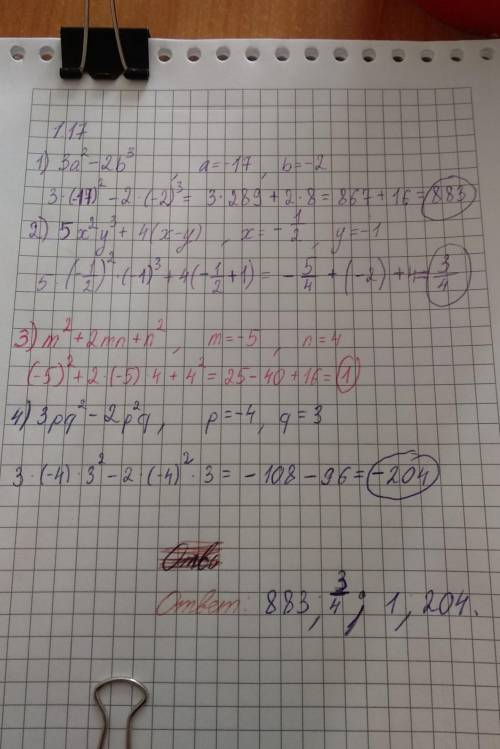 1.17
1) 3a² - 2b³, a = -17, b = -2
3·(-17)² - 2·(-2)³ = 3·289 + 2·8 = 867 + 16 = 883
2) 5x²y³ + 4(x-y), x = -1/2, y = -1
5·(-1/2)²·(-1)³ + 4(-1/2+1) = -5/4 + (-2) + 4 = 3/4
3) m² + 2mn + n², m = -5, n = 4
(-5)² + 2·(-5) 4 + 4² = 25 - 40 + 16 = 1
4) 3pq² - 2p²q, p = -4, q = 3
3·(-4)·3² - 2·(-4)²·3 = -108 - 96 = -204
Ответ: 883; 3/4; 1, 204.